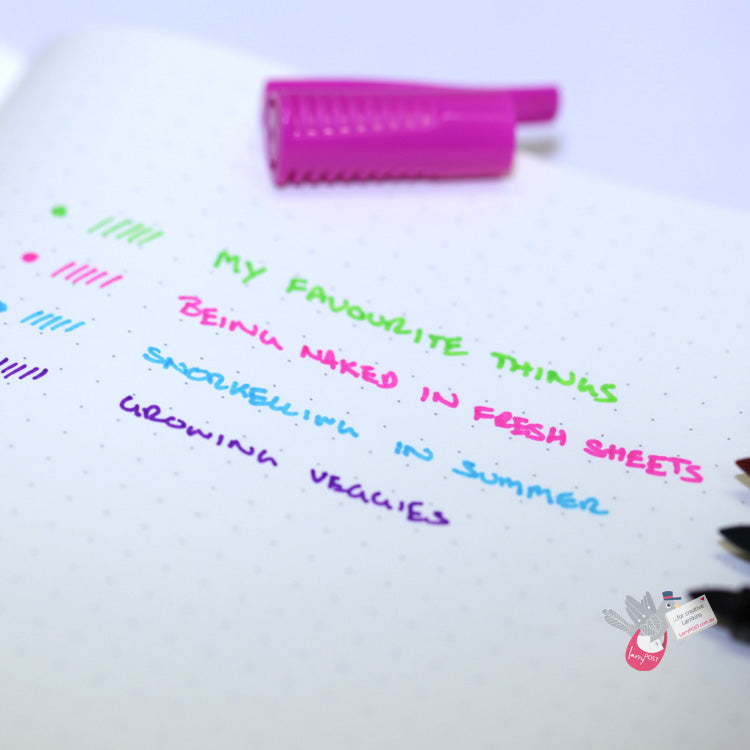 MY FAVOURITE THINGS
BEING NAKED IN FRESH SHEETS
SNORKELLING IN SUMMER
GROWING VEGGIES
...for creative
Larrikins
LarryPOST.com.au
larryPOST